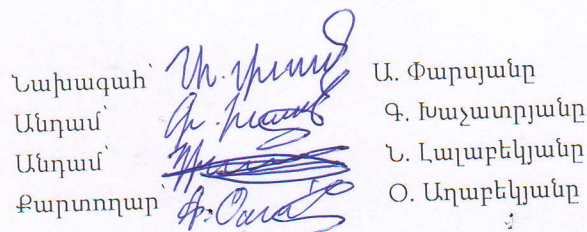 Նախագահ՝ Ա. Փարսյանը
Անդամ՝ Գ. Խաչատրյանը
Անդամ՝ Ն. Լալաբեկյանը
Քարտուղար՝ Օ. Աղաբեկյանը